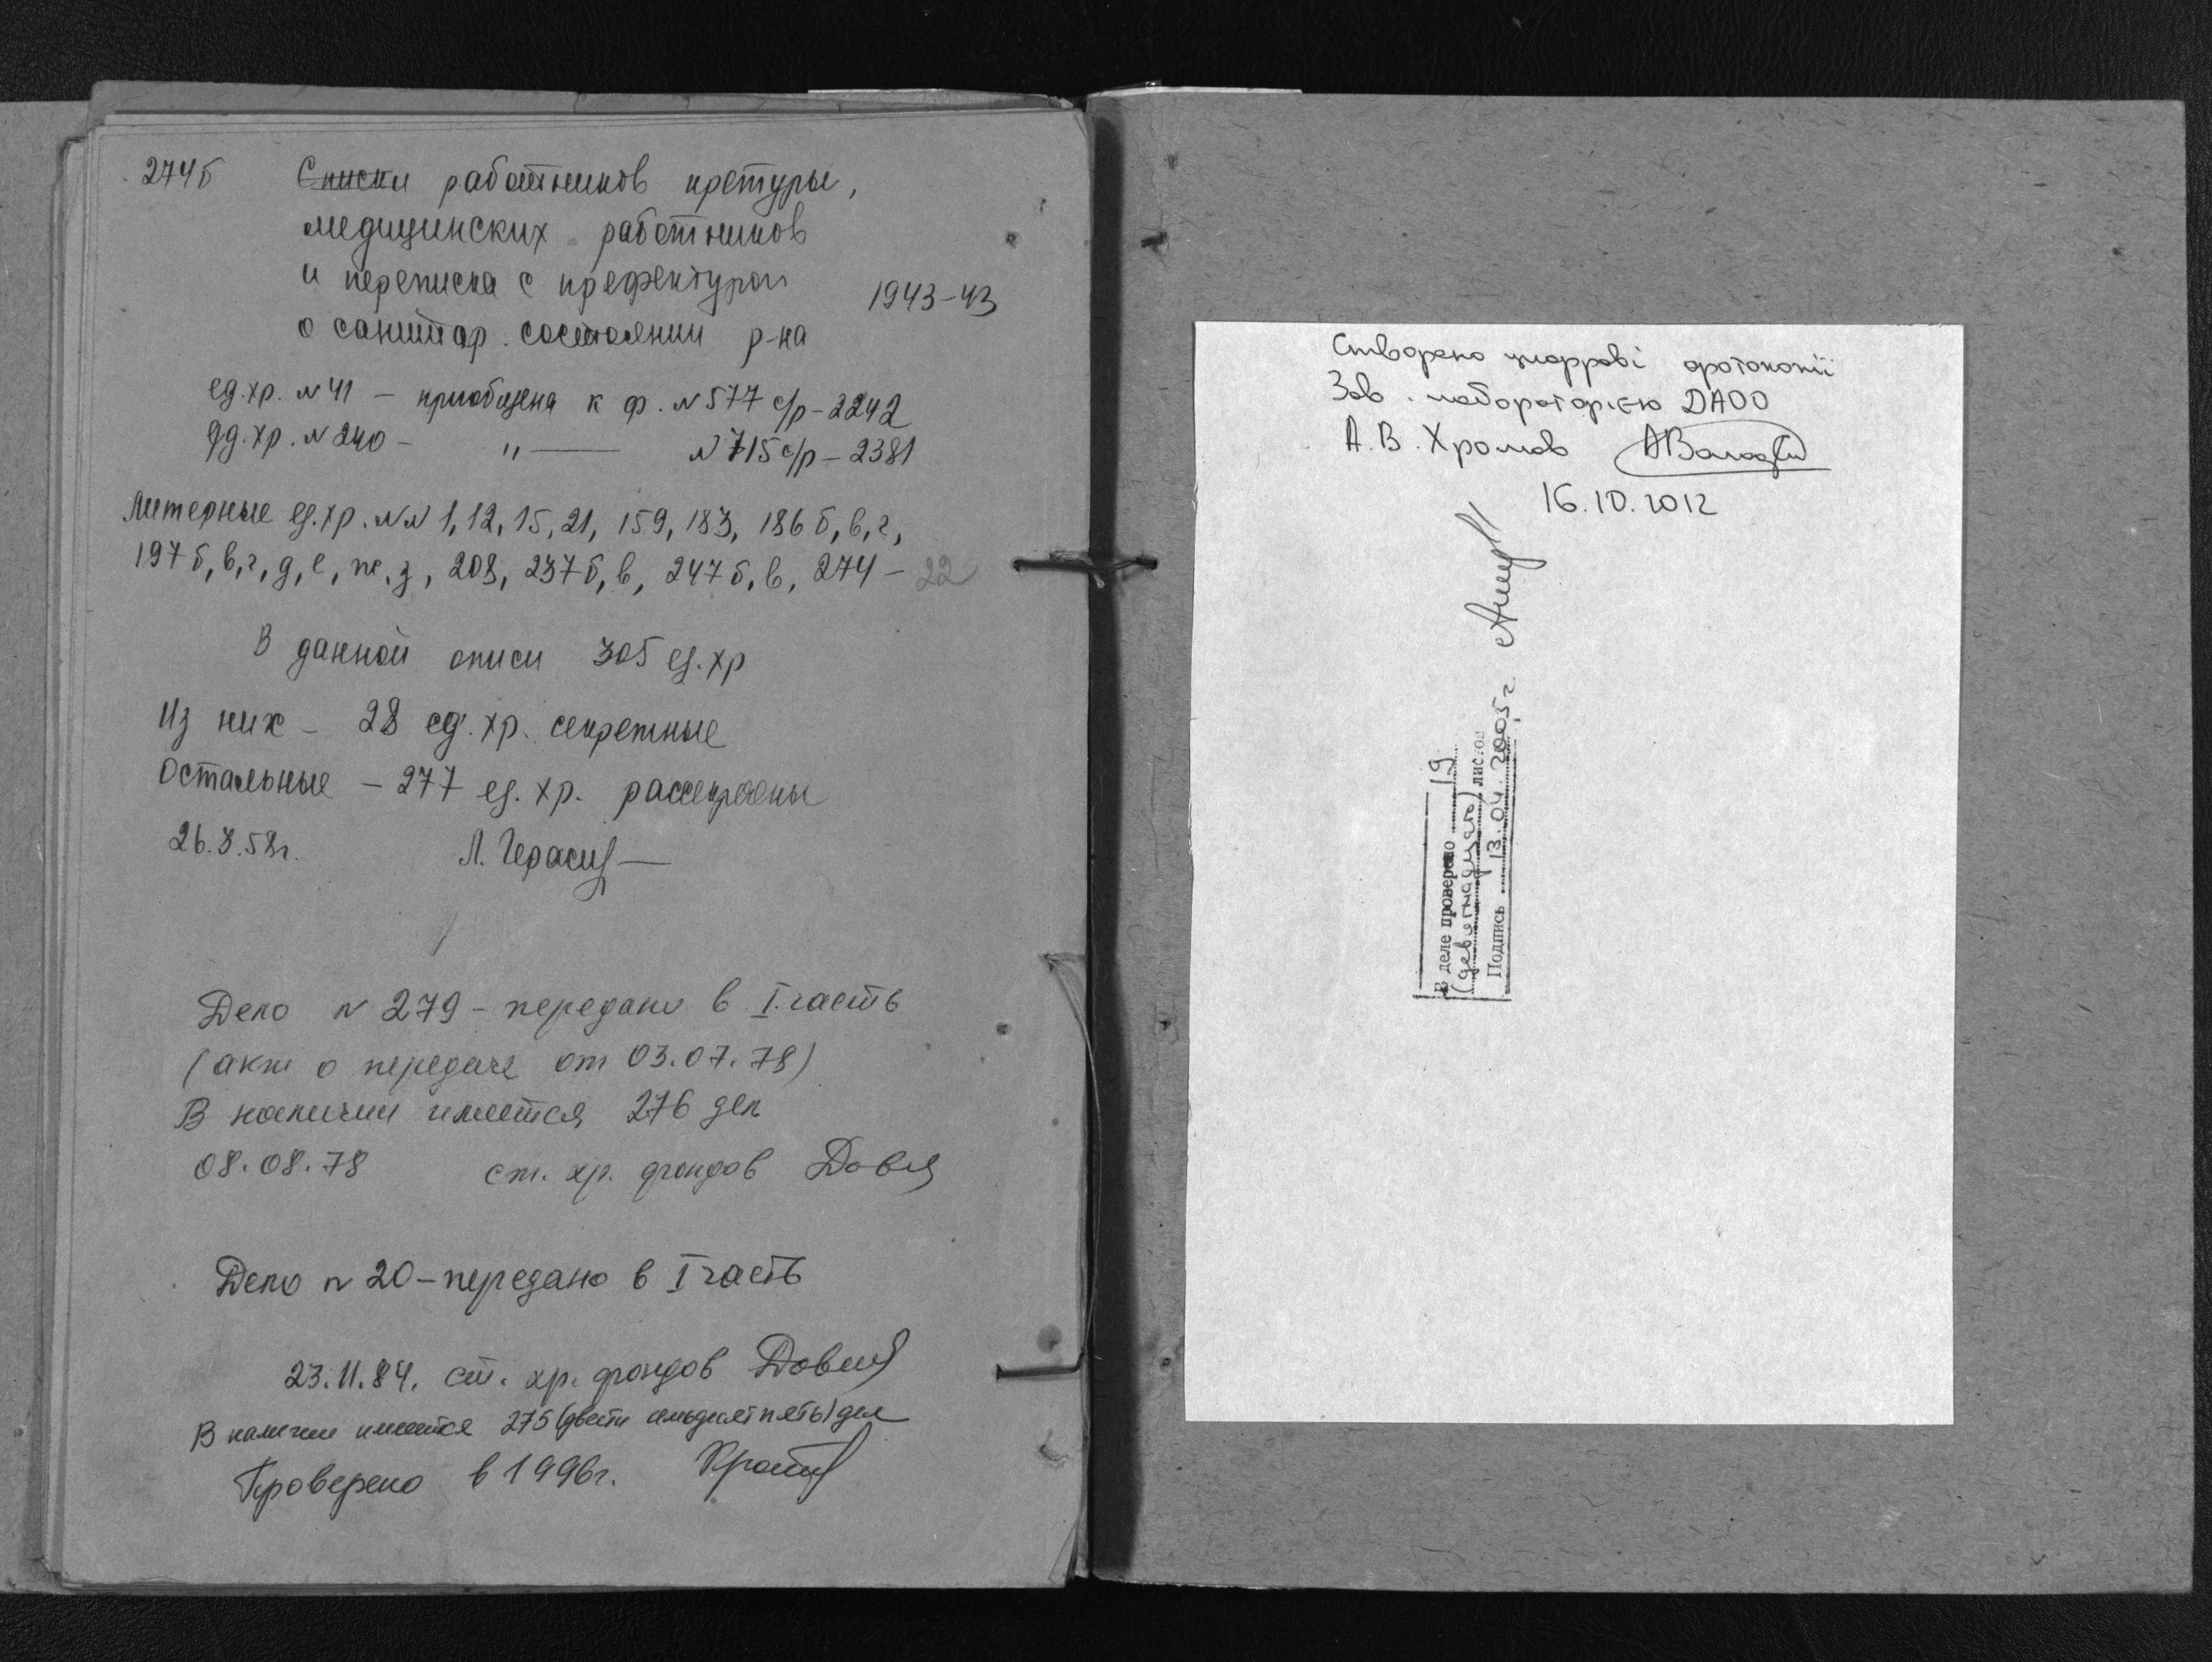 274б Списки работников претуры,
медицинских работников
и переписка с префектурой
1943-43
о санитар. состоянии р-на
ед.хр. №41 – приобщена к ф. №577 с/р-2242
ед.хр. №240 – " — №715 с/р – 2381
Литерные ед.хр. №№ 1, 12, 15, 21, 159, 183, 186 б, в, г,
197 б, в, г, д, е, ж, з, 208, 237 б, в, 247 б, в, 274 – 22
В данной описи 305 ед.хр
Из них – 28 ед. хр. секретные
Остальные – 277 ед. хр. рассекречены
26.3.58г. Л.
Дело № 279 – передано в I часть
(акт о передаче от 03.07.78)
В наличии имеется 276 дел
08.08.78 ст. хр. фондов
Дело № 20 – передано в I часть
23.11.84. ст. хр. фондов
В наличии имеется 275 (двести семьдесят пять) дел
Проверено в 1996г.
Створено цифрові фотокопії
Зав. лабораторією ДАОО
А.В. Хромов
16.10.2012
В деле проверено 19
(девятнадцать) листов
Подпись 13.04.2005г